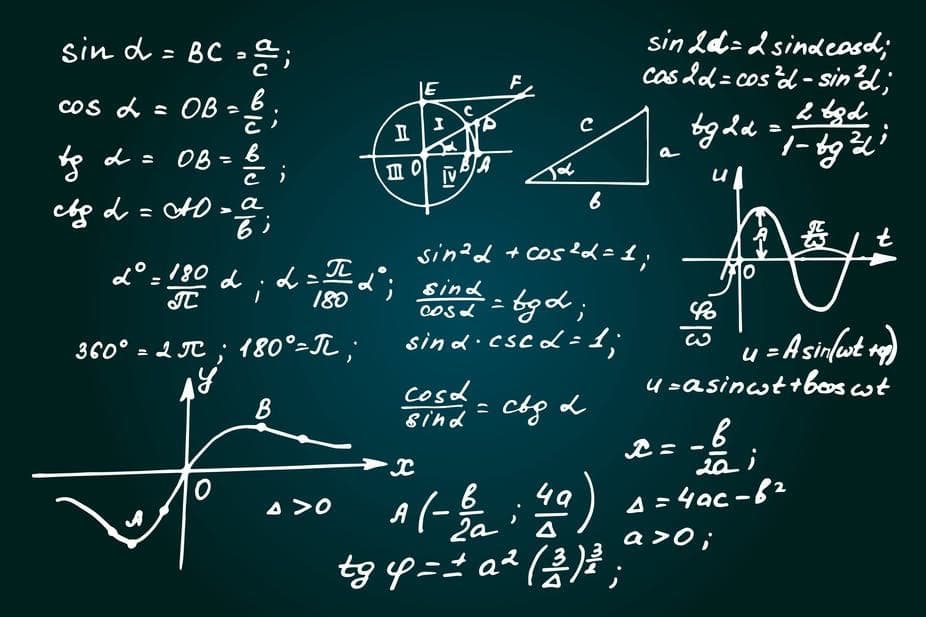 sin α = BC = a/c;
cos α = OB = b/c;
tg α = OB = b/c;
ctg α = AD = a/b;
E F
II I C D
α
III O IV B A
c a
α
b
sin 2α = 2 sinα cosα;
cos 2α = cos²α - sin²α;
tg 2α = 2 tgα / 1 - tg²α;
u
A π/ω t
O
φ₀/ω
u = A sin(ωt + φ)
u = a sin ωt + b cos ωt
α° = 180/π α ; α = π/180 α°;
360° = 2π ; 180° = π ;
sin²α + cos²α = 1;
sinα/cosα = tg α;
sin α · csc α = 1;
cosα/sinα = ctg α
y
B
O x
A
Δ > 0
A (- b/2a ; 4a/Δ)
tg φ = ± a² (3/Δ)^3/2 ;
x = - b/2a ;
Δ = 4ac - b²
a > 0 ;